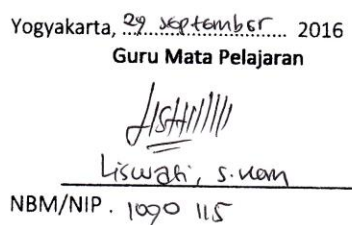 Yogyakarta, 29 September 2016
Guru Mata Pelajaran
Liswati, S.Kom
NBM/NIP. 1090 115